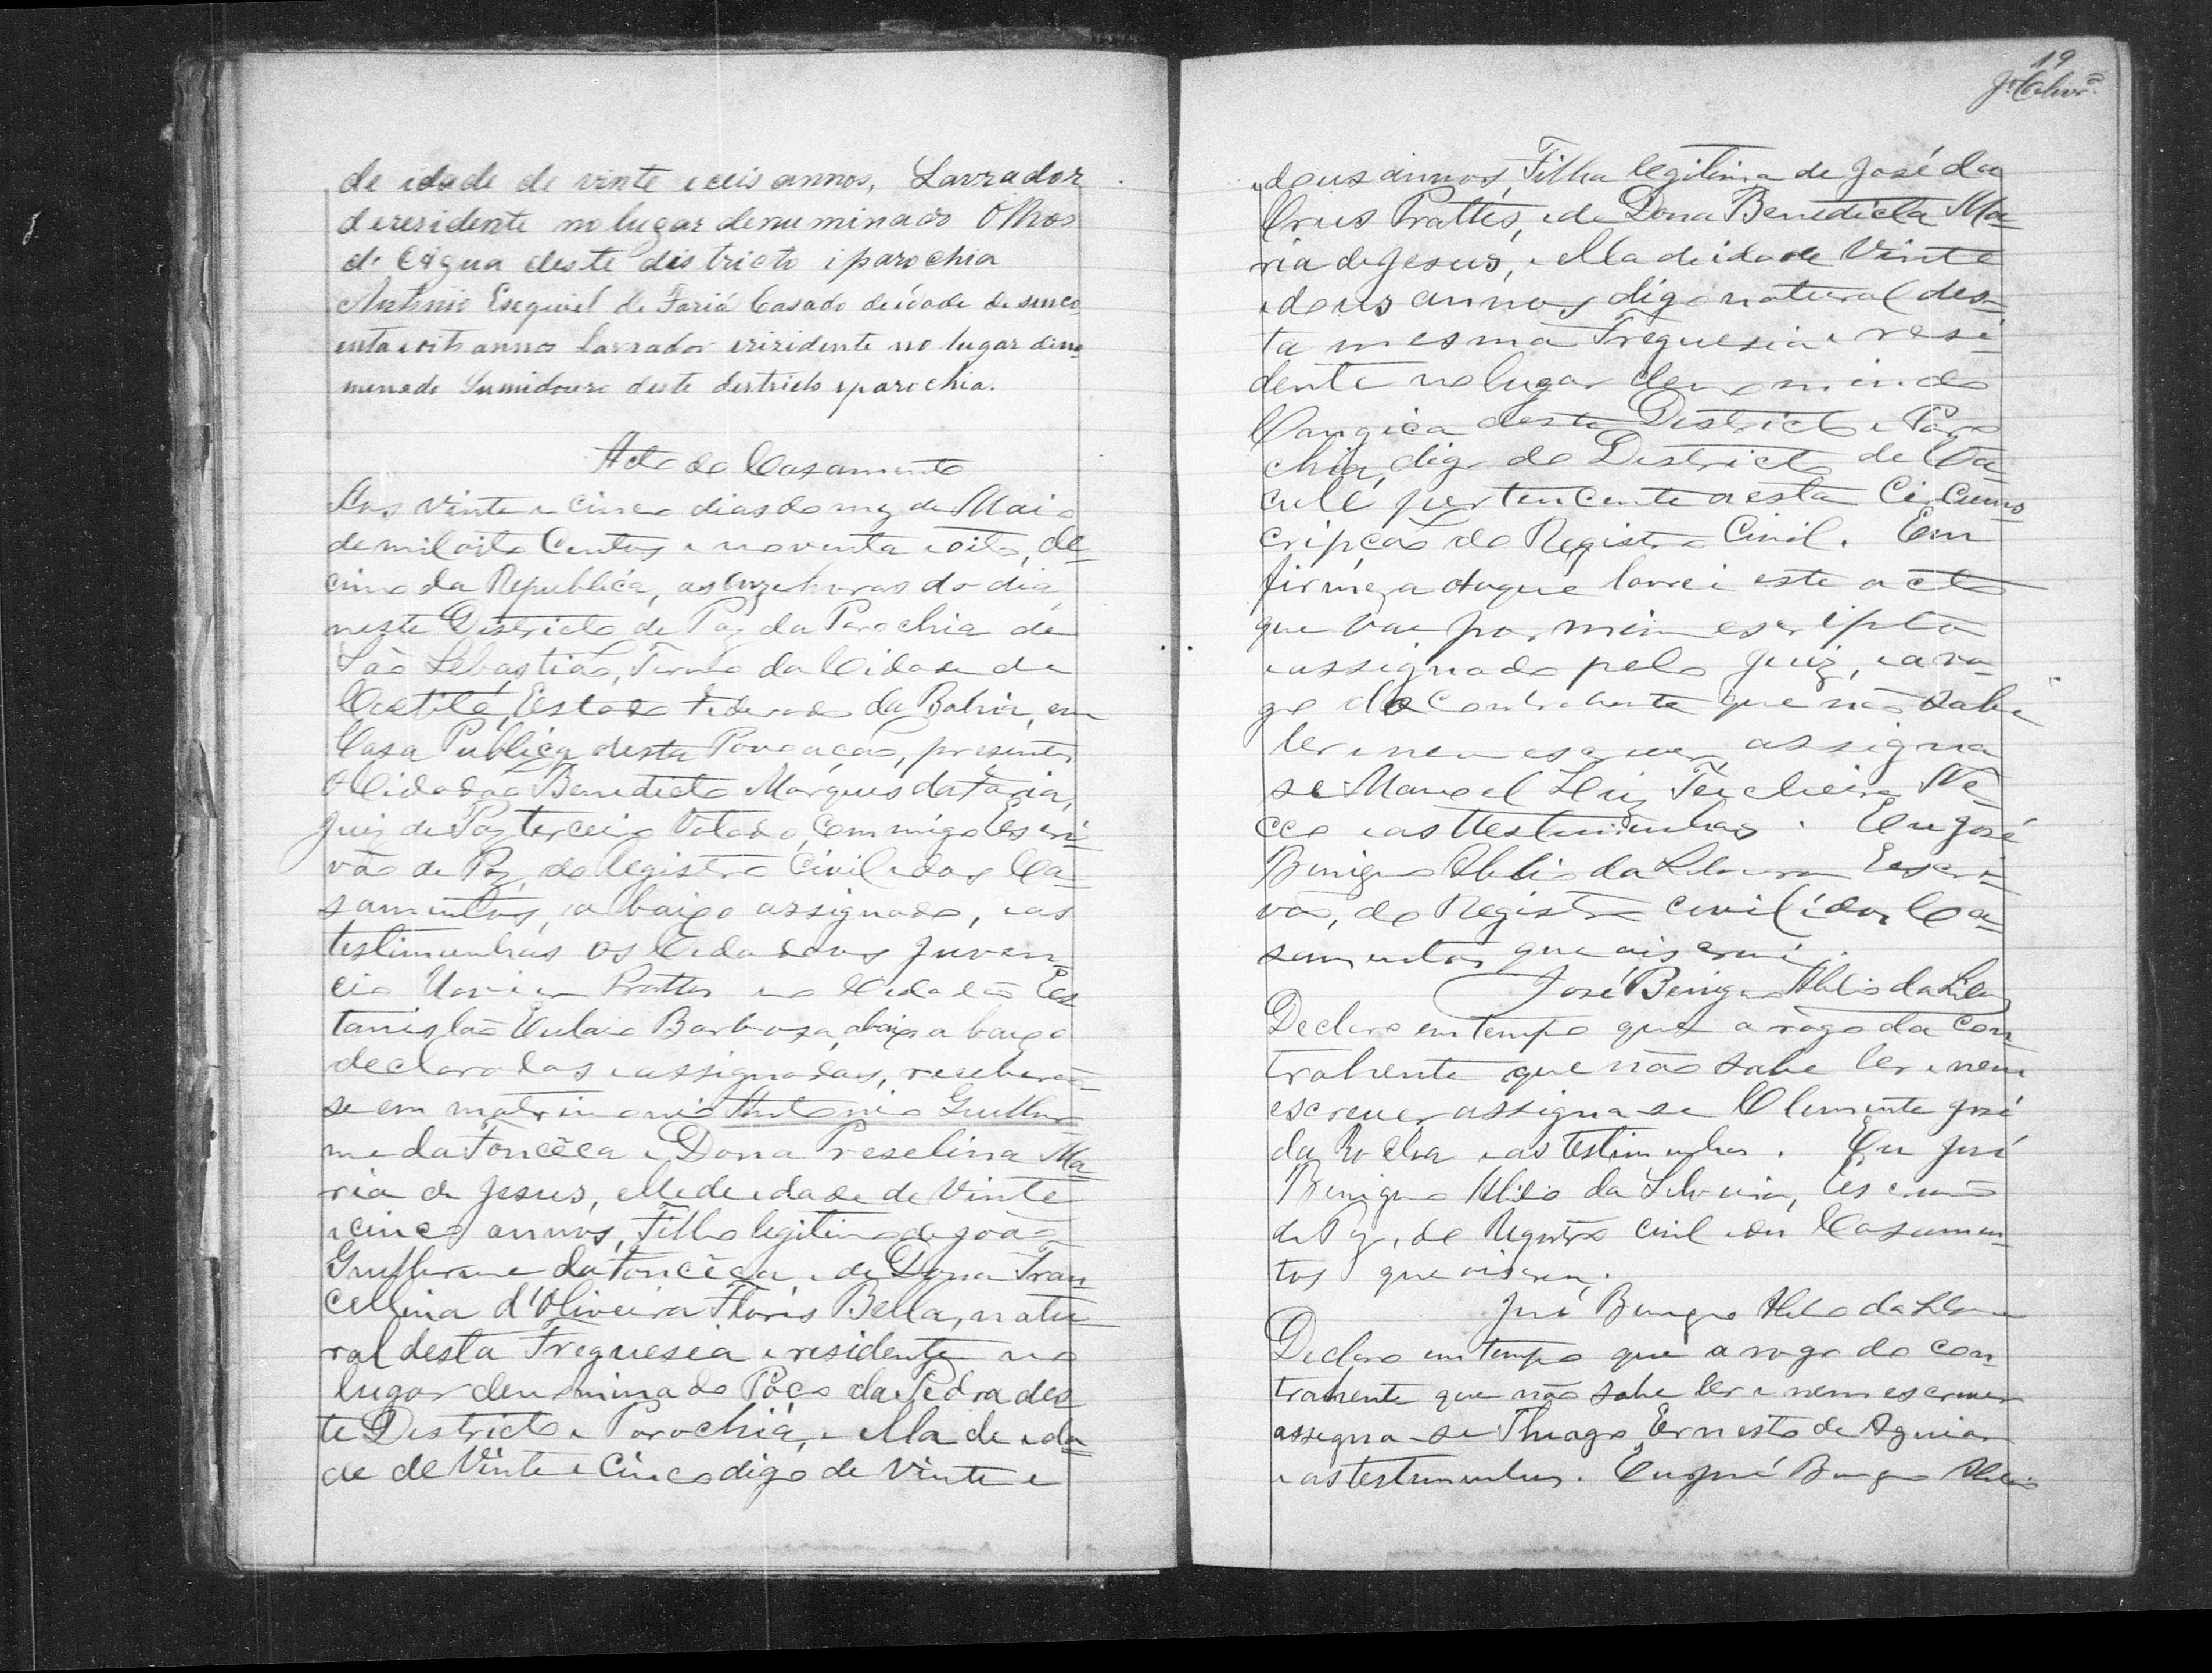 de idade de vinte e ceis annos, Lavrador
de rezidente no lugar denuminado Olhos
d'Eágua deste districto i parochia
Antonio Esequiel de Fariá Casado deidade de sinco
enta i oito annos Lavrador irizidente no lugar deno
menado Sumidouro deste destricto iparochia.
Acto do Casamento
Aos vinte e cinco dias do mez de Maio
de mil oito Centos e noventa e oito, de=
cimo da Republica, as onze horas do dia,
neste Districto de Paz da Parochia de
São Sebastião, Termo da Cidade de
Caetité, Estado Federado da Bahia, em
Casa Publica desta Povoação, presentes
o Cidadão Benedicto Marques da Faria,
Juiz de Paz terceiro Votado, commigo Escri=
vão de Paz, do Registro Civil e dos Ca=
samentos, abaixo assignado, e as
testimunhas os Cidadãos Juven=
cio Xavier Prattes e o Cidadão Es
tanislão Eulaio Barboza, abaixo a baixo
declaradas e assignadas, receberão=
se em matrimonio Antonio Guilher
me da Foncêca e Dona Preselina Ma
ria de Jesus, elle de idade de Vinte
e cinco annos, Filho legitimo de João
Guilherme da Foncêca e de Dona Fran
cellina d'Oliveira Floris Bella, natu
ral desta Freguesia e residente no
lugar denominado Pôço da Pedra des
te Districto e Parochia, e ella de ida
de de Vinte e Cinco digo de Vinte e
19
e dous annos, Filha legitima de José da
Crus Prattes, e de Dona Benedicta Ma=
ria de Jesus, e ella de idade Vinte
e dous annos digo natural des=
ta mesma Freguesia e resi=
dente no lugar denominado
Cangica deste Districto e Paro
chia, digo do Districto de Ca=
culé pertencente a esta Circums
cripção do Registro Civil. Em
firmeza do que lavrei este acto
que vae por mim escripto
e assignado pelo Juiz, e a ro=
go do contrahente que não sabe
ler e nem escrever, assigna
se Manoel Luiz Teicheira Ne=
cco e as testimunhas. Eu José
Benigno Abilio da Silveira Escri=
vão, do Registro Civil e dos Ca=
samentos que o iscrevi.
José Benigno Abilio da Silva
Declaro em tempo que a rogo da con
trahente que não sabe ler e nem
escrever assigna-se Clemente José
da Rocha e as testimunhas. Eu José
Benigno Abilio da Silveira, Escrivão
de Paz, do Registro Civil e dos Casamen=
tos que o iscrevi.
José Benigno Abilio da Silveira
Declaro em tempo que a rogo do con
trahente que não sabe ler e nem escrever
assigna-se Thiago Ernesto de Aguiar
e as testimunhas. Eu José Benigno Abilio